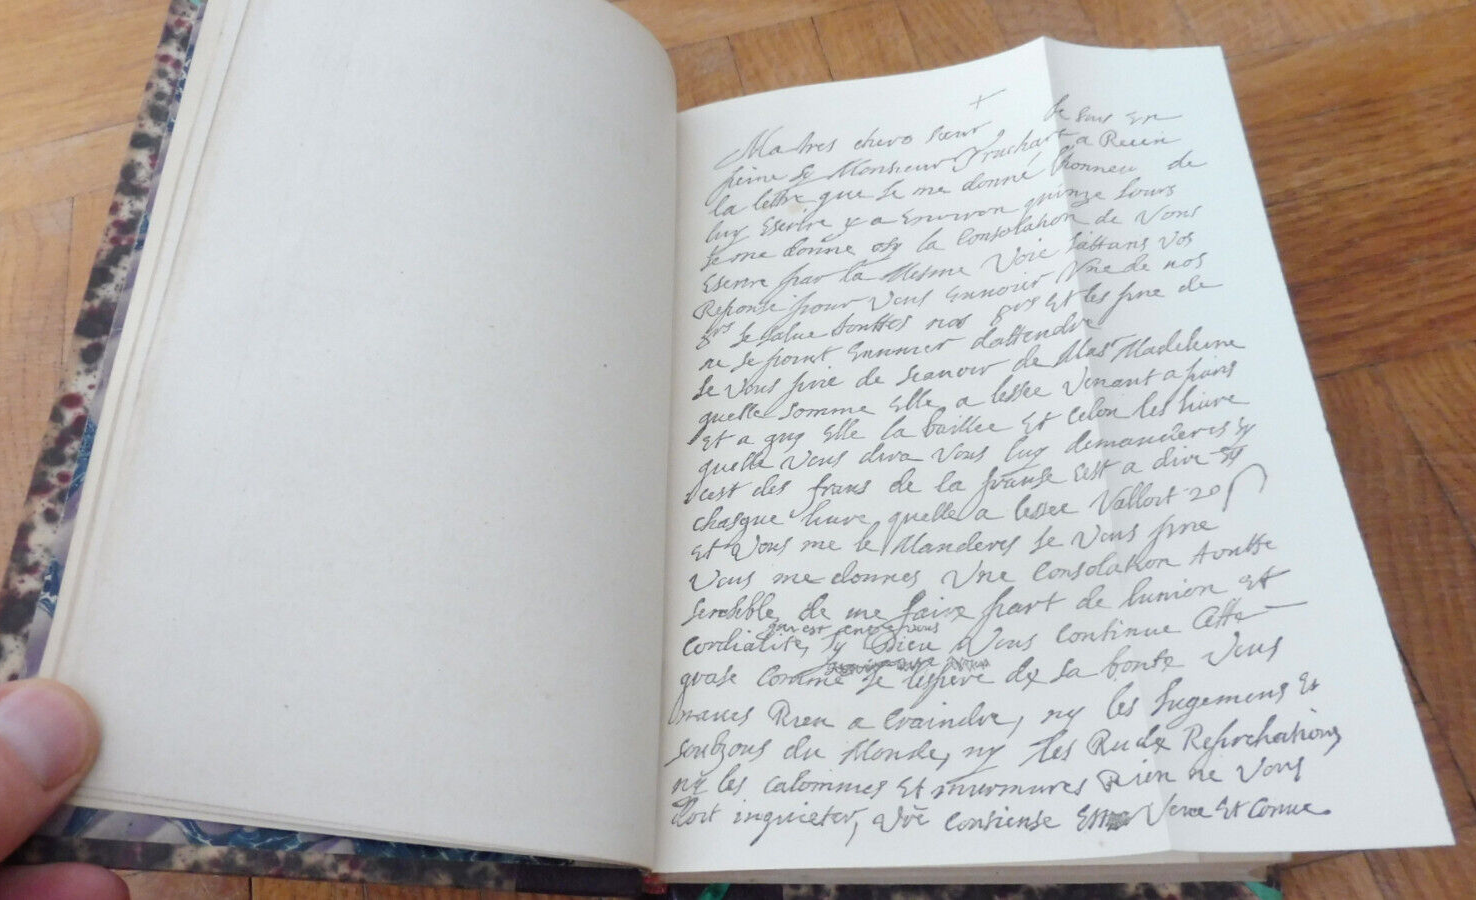 +
Ma tres chere sœur Je suis En
peine sy Monsieur Truchart a Receu
la lettre que Je me donné lhonneur de
luy Escrire y a Environ quinze Jours
Je me donne osy la Consolation de Vous
Escrire par la Mesme Voie Jattans Vos
Reponse pour Vous Envoier Vne de nos
srs Je salue touttes nos srs Et les prie de
ne se point Ennuier dattendre
Je Vous prie de scavoir de Mast Madeleine
quelle somme Elle a lessée Venant a paris
Et a quy Elle la baillée Et Celon les livre
quelle Vous dira Vous luy demanderés sy
cest des frans de la franse Cest a dire sy
chasque livre quelle a lessée Valloit 20 s
Et Vous me le Manderés Je Vous prie
Vous me donnes Vne Consolation toutte
sensible de me faire part de lunion Et
Cordialité, qui est entre Vous
sy Dieu Vous Continue Cette
grase Comme Je lespere de sa bonté Vous
naves Rien a Craindre, ny les Jugemens Et
soubzons du Monde, ny les Rude Reprehations
ny les calomnies Et murmures Rien ne Vous
doit inquieter, Vre Consiense Est Veue Et Conue